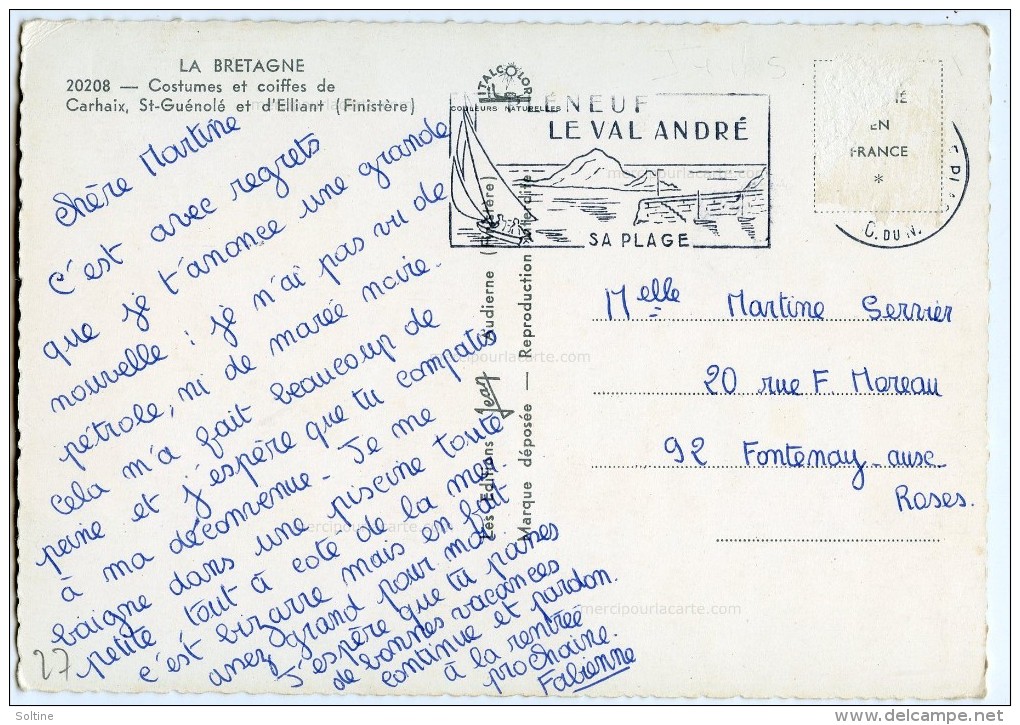 LA BRETAGNE
20208 — Costumes et coiffes de
Carhaix, St-Guénolé et d'Elliant (Finistère)
ITALCOLOR
COULEURS NATURELLES
ÉNEUF
LE VAL ANDRÉ
SA PLAGE
EN
FRANCE
*
C. DU N.
Chère Martine
C'est avec regrets
que je t'anonce une grande
nouvelle : je n'ai pas vu de
pétrole, ni de marée noire.
Cela m'a fait beaucoup de
peine et j'espère que tu compatis
à ma déconvenue. Je me
baigne dans une piscine toute
petite tout à coté de la mer.
c'est bizarre mais en fait
assez grand pour moi.
J'espère que tu passes
de bonnes vacances
continue et pardon.
à la rentrée
prochaine.
Fabienne
27
Les Editions Jean Audierne (Finistère)
Marque déposée — Reproduction interdite
Melle Martine Serrier
20 rue F. Moreau
92 Fontenay-aux-
Roses.
mercipourlacarte.com
mercipourlacarte.com
mercipourlacarte.com
mercipourlacarte.com
mercipourlacarte.com
Soltine
www.delcampe.net